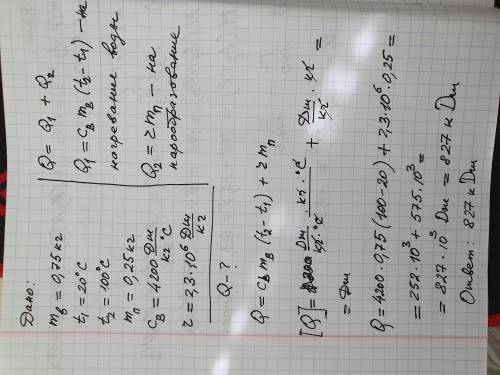 Дано:
mв = 0,75 кг
t₁ = 20°C
t₂ = 100°C
mп = 0,25 кг
cв = 4200 Дж/кг °C
r = 2,3·10⁶ Дж/кг
Q - ?
Q = Q₁ + Q₂
Q₁ = cв mв (t₂ - t₁) - на
нагревание воды
Q₂ = r mп - на
парообразование
Q = cв mв (t₂ - t₁) + r mп
[Q] = Дж/кг·°C · кг·°C + Дж/кг · кг =
= Дж
Q = 4200·0,75 (100-20) + 2,3·10⁶·0,25 =
= 252·10³ + 575·10³ =
= 827·10³ Дж = 827 кДж
Ответ: 827 кДж